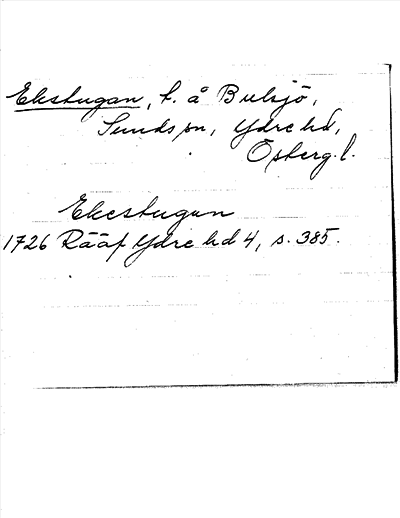 Ekstugan, t. å Bulsjö,
Sunds sn, Ydre hd,
Östergl.
Ekestugun
1726 Rääf Ydre hd 4, s. 385.